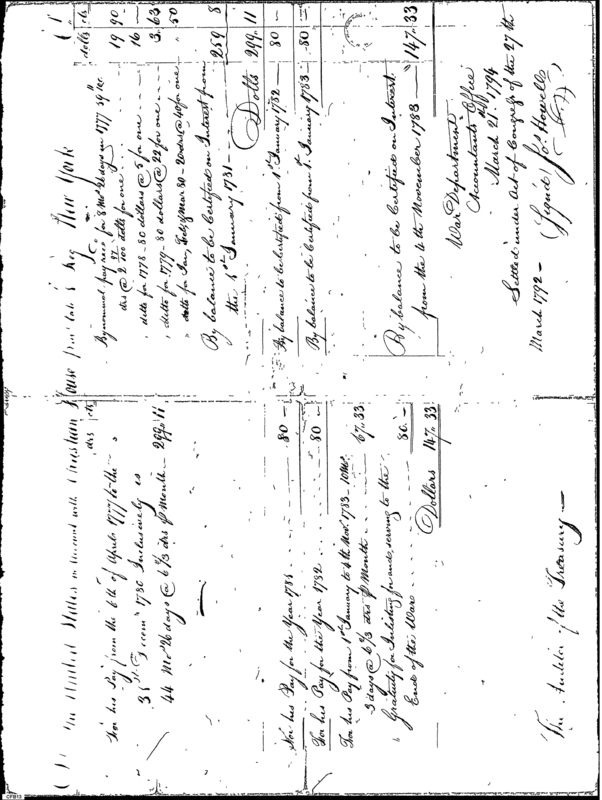 The United States in Account with Christian House private 1 Reg New York
drs cts
For his Pay from the 6th of April 1777 to the
31st Decem 1780 Inclusively is
44 Mos 26 days @ 6 2/3 drs P Month 299.11
For his Pay for the Year 1781 80 –
For his Pay for the Year 1782 80 –
For his Pay from 1st January to 4th Nov. 1783 10 Mo.
3 days @ 6 2/3 drs P Month 67.33
Gratuity for Inlisting for and serving to the
End of the War 80 –
Dollars 147.33
The Auditor of the Treasury –
Cr
dolls cts
By nominal pay recd for 8 Mo 26 days in 1777
drs @ 2 100 dolls for one 19 90
dolls for 1778 – 80 dollars @ 5 for one 16 –
dolls for 1779 – 80 dollars @ 22 for one 3.63
dolls for Jany, Feby & Mar 80 – 20 dolrs @ 40 for one .50
By balance to be Certified on Interest from
the 1st January 1781 – 259 8
Dolls 299.11
By balance to be certified from 1st January 1782 – 80 –
By balance to be Certified from 1. January 1783 – 80 –
By balance to be Certified on Interest
from the 4th November 1783 – 147.33
War Department
Accountants Office
March 21st 1794
Settled under Act of Congress of the 27th
March 1792 –
(Signed) Jos Howell
CFB13